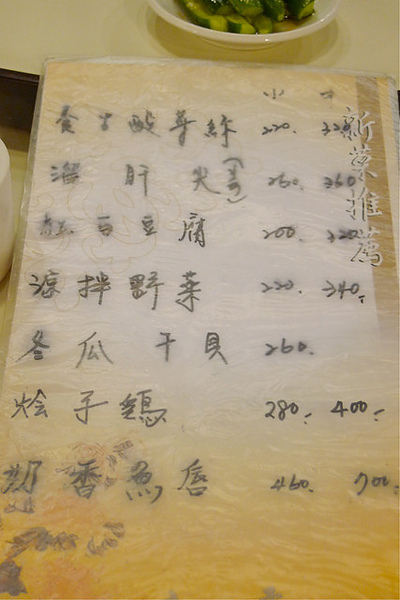 小 中
養生酸 絲 220. 320
溜肝尖 260. 360
紅白豆腐 200. 320
涼拌野菜 220. 340.
冬瓜干貝 260.
燴子雞 280.- 400.-
奶香魚唇 460. 700.
新菜推薦